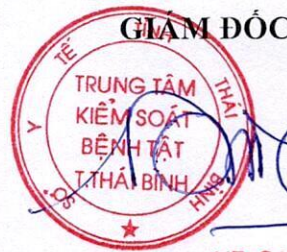 GIÁM ĐỐC
SỞ Y TẾ TỈNH THÁI BÌNH
TRUNG TÂM
KIỂM SOÁT
BỆNH TẬT
T.THÁI BÌNH